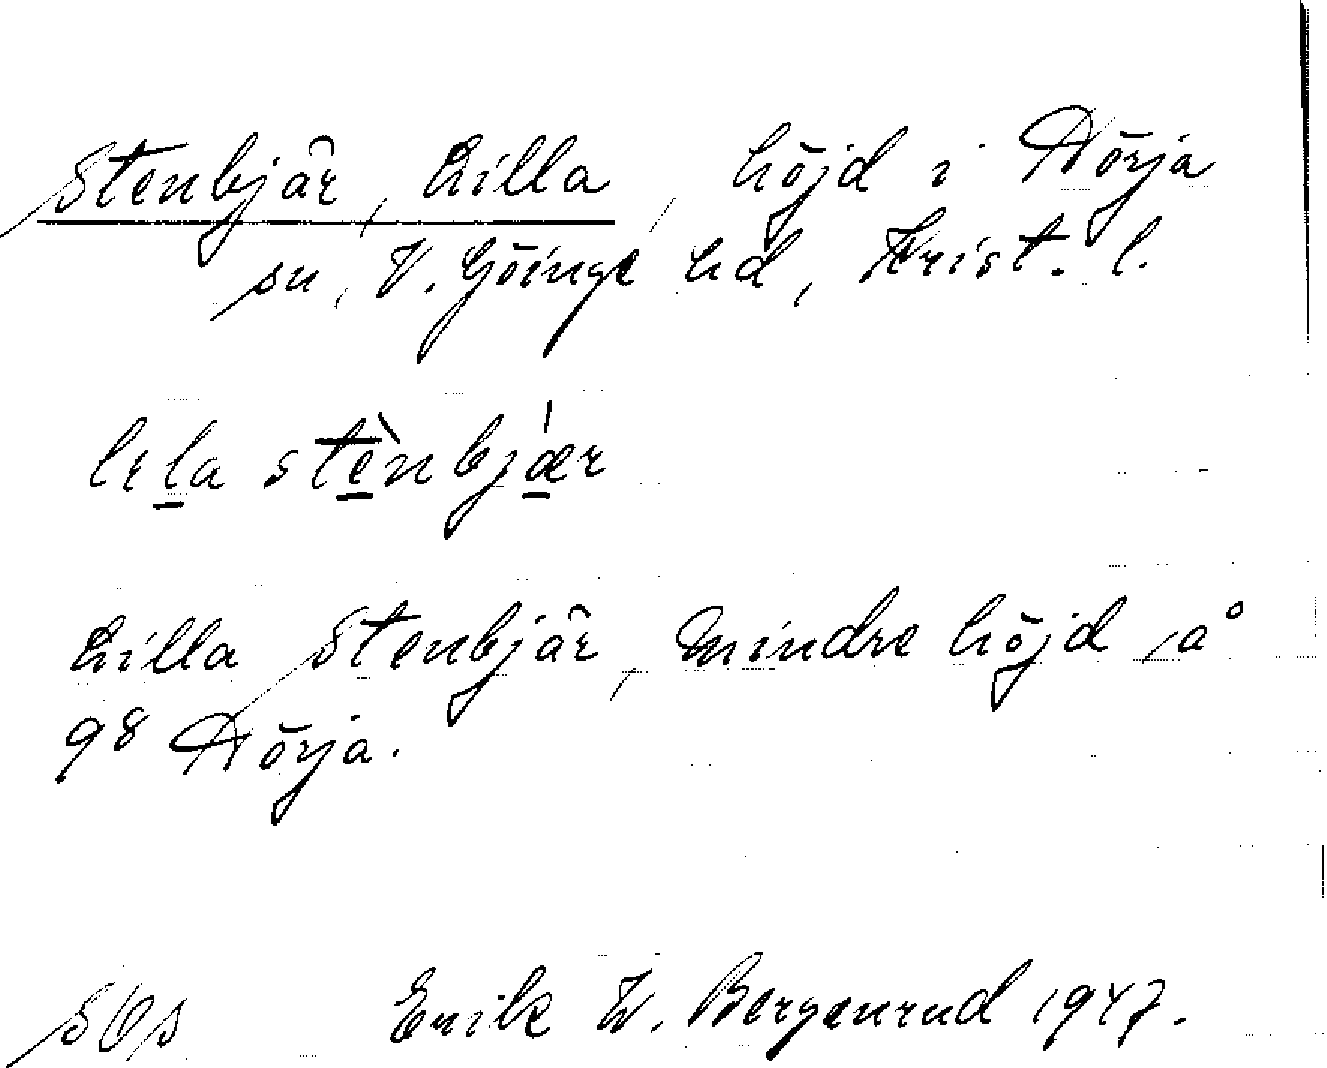 Stenbjär, Lilla, höjd i Nörja
sn, V. Göinge hd, Krist. l.
lila stènbjǽr
Lilla Stenbjär, mindre höjd å
98 Nörja.
Erik W. Bergenrud 1947.